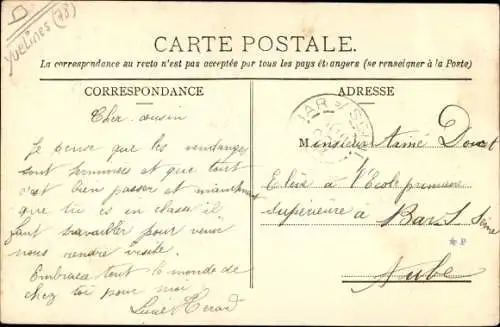 Yvelines (78)
CARTE POSTALE.
La correspondance au recto n'est pas acceptée par tous les pays étrangers (se renseigner à la Poste)
CORRESPONDANCE
Cher cousin
Je pense que les vendanges
sont terminées et que tout
s'est bien passer et maintenant
que tu es en classe il
faut travailler pour venir
nous rendre visite.
Embrasse tout le monde de
chez toi pour moi
Lucie
ADRESSE
BAR S/ SEINE
Monsieur Aimé Douet
Elève à l'Ecole primaire
supérieure à Bar s. Seine
Aube